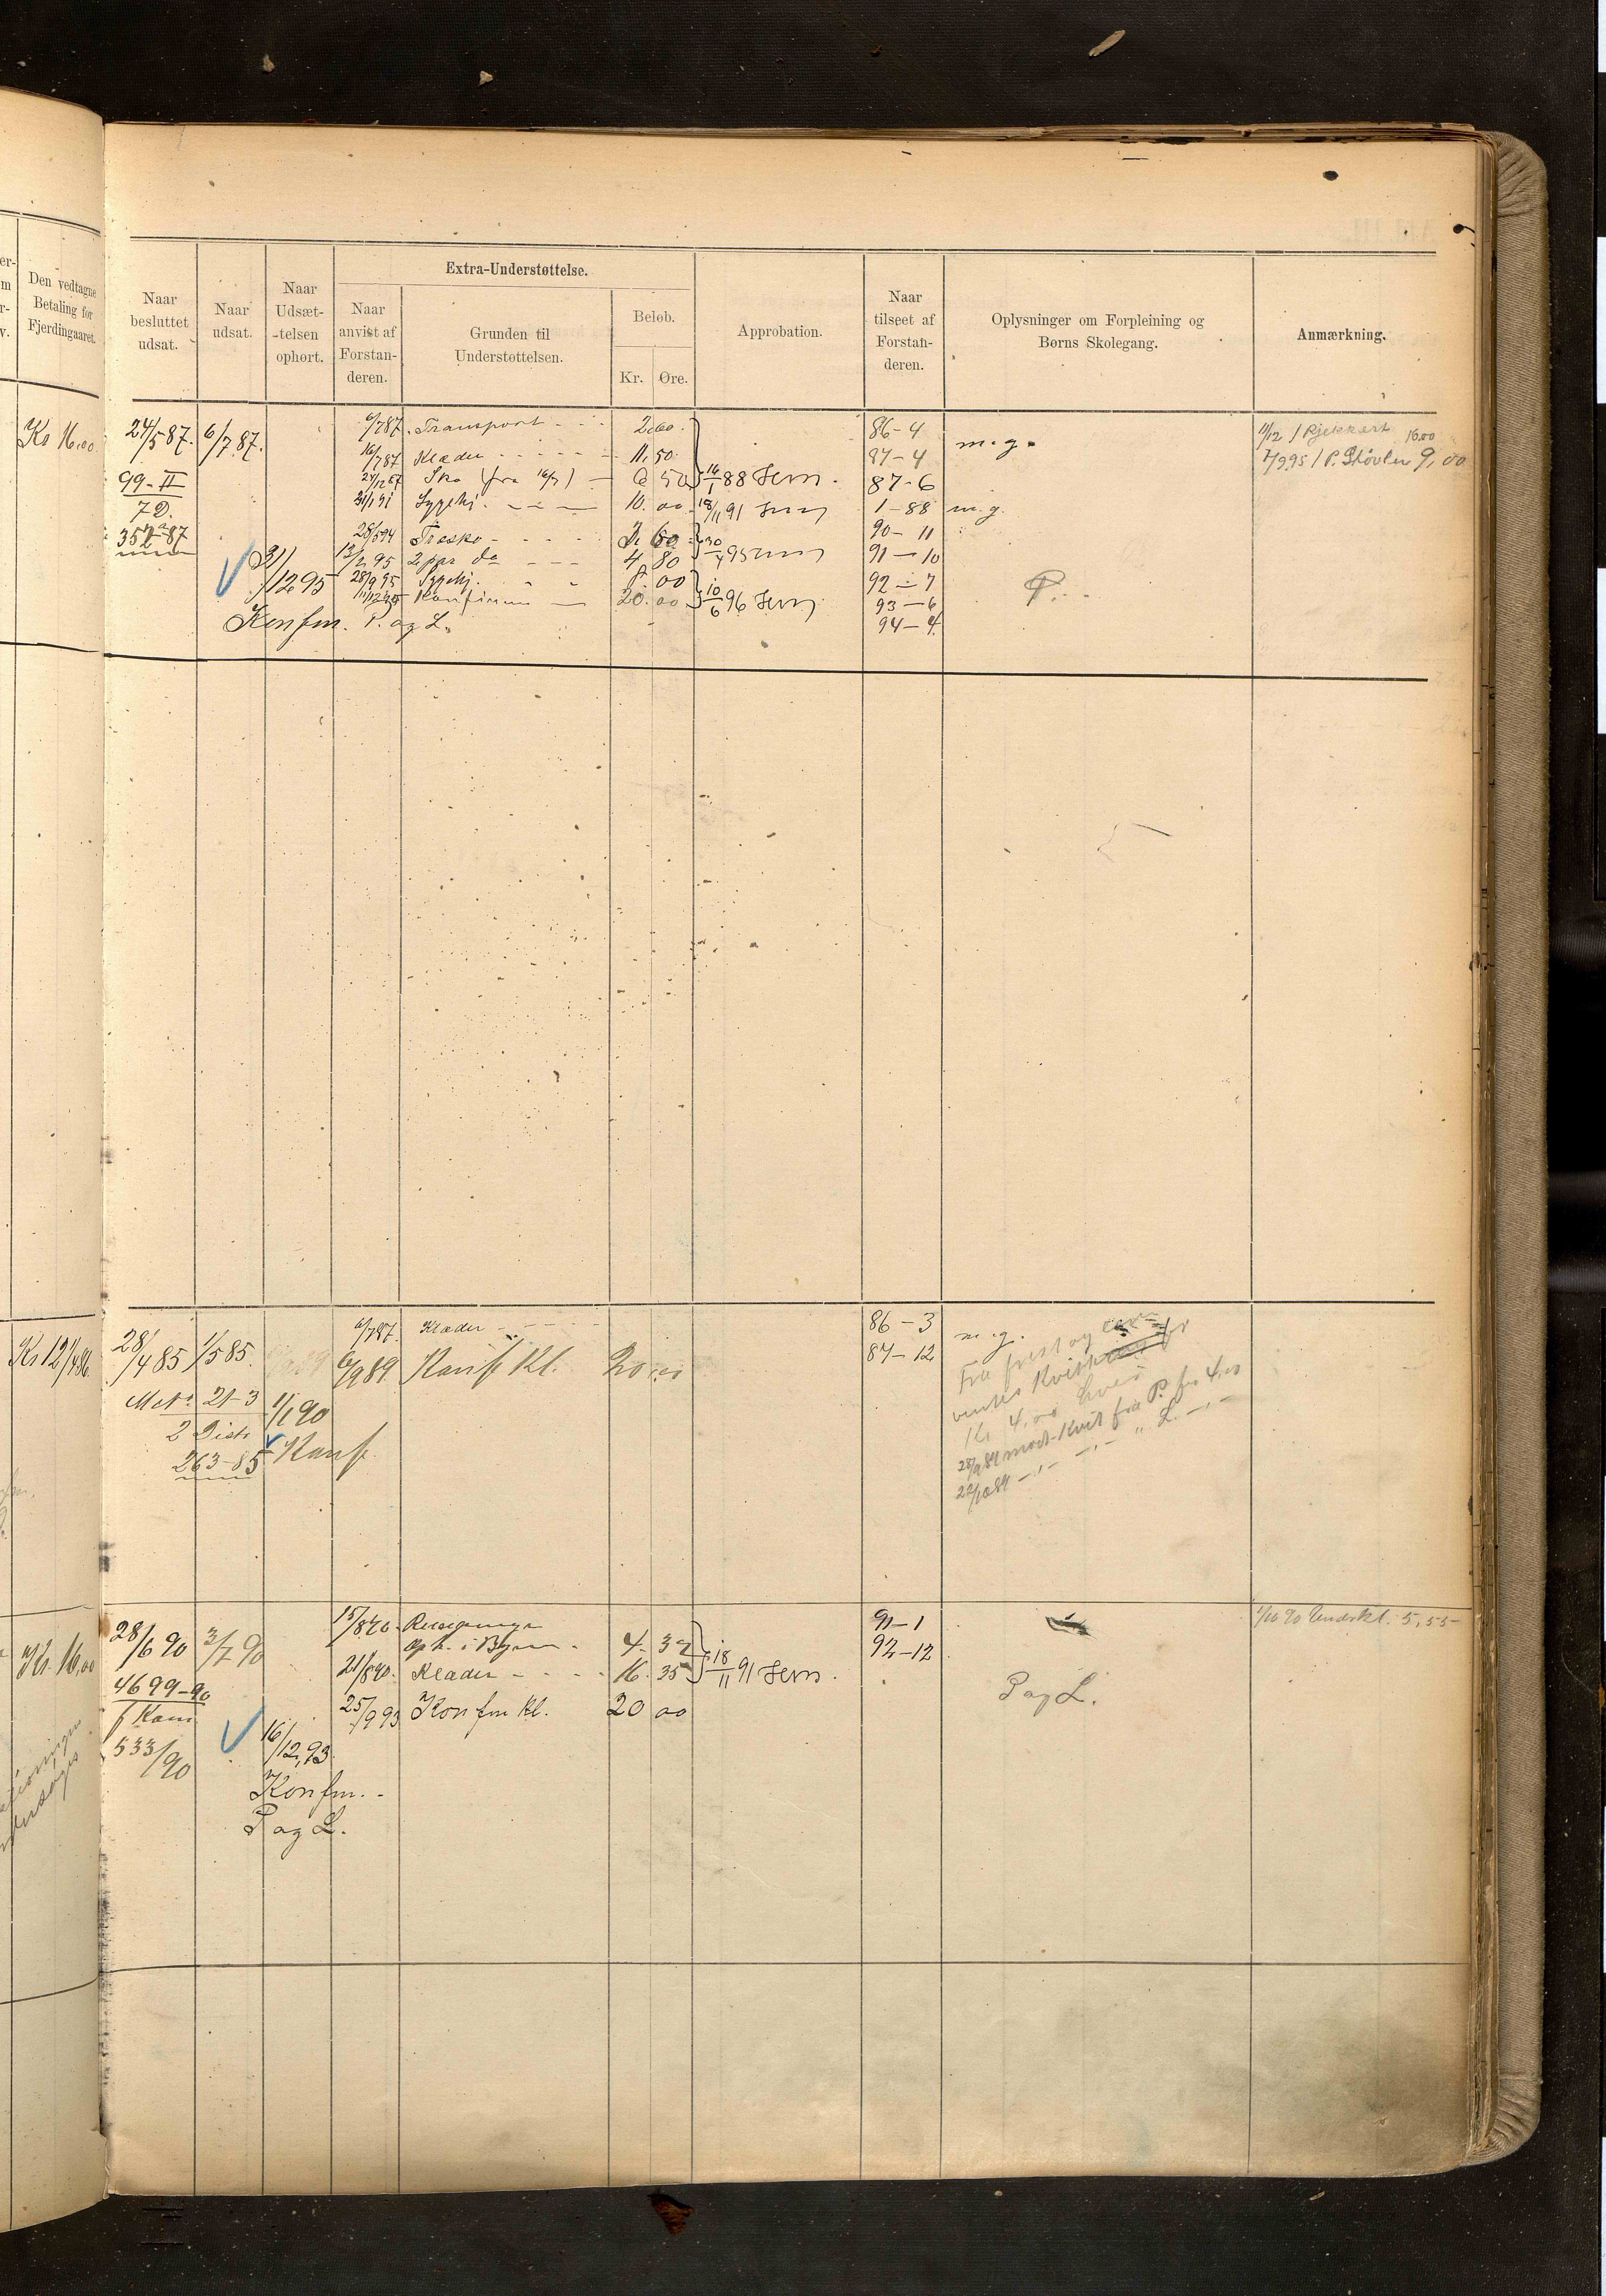 Den vedtagne
Betaling for
Fjerdingaaret.
Naar
besluttet
udsat.
Naar
udsat.
Naar
Udsæt-
-telsen
ophørt.
Extra-Understøttelse.
Naar
anvist af
Forstan-
deren.
Grunden til
Understøttelsen.
Beløb.
Kr. Øre.
Approbation.
Naar
tilseet af
Forstan-
deren.
Oplysninger om Forpleining og
Børns Skolegang.
Anmærkning.
Kr 16,00
24/5 87. 6/7 87.
99-II
7 D.
352-87
31/12 95
Konfm. P. og L.
6/7 87. Transport - - - 2.00.
16/7 87 Klæder - - - - - 11.50.
Sko (fra 16/7) - 6 50
31/1 91 Sygehj. - - - 10.00
28/5 94 Træsko - - - - 2 60
13/2 95 2 par do - - - 4 80
28/9 95 Sygehj. - - 8.00
11/12 95 Konfirm - 20.00
14/1 88
18/11 91
30/4 95
10/6 96
86-4
87-4
87-6
1-88
90-11
91-10
92-7
93-6
94-4
m.g.
m.g.
P.
11/12 16.00
7/9 95 / P. Støvler 9,00
Kr 12 1/4 86
28/4 85 1/5 85.
21-3
2 Distr
263-85
1/1 90
Konf.
6/7 87. Klæder - - - -
6/9 89 Konf Kl. 20.00
86-3
87-12
m.g.
Kr 4,00 hver
28/9 89 mod Kvit fra P. for 4,00
22/10 89 -,- -,- " L. -,-
Kr. 16,00
28/6 90 3/7 90
4699-90
f Kom
533/90
16/12,93
Konfm. -
P og L.
15/8 90.
Oph. i Byen - 4. 37
21/8 90. Klæder - - - - 16. 35
25/9 93 Konfm Kl. 20 00
18/11 91
91-1
92-12
P og L.
1/10 90 Underkl. 5,55-